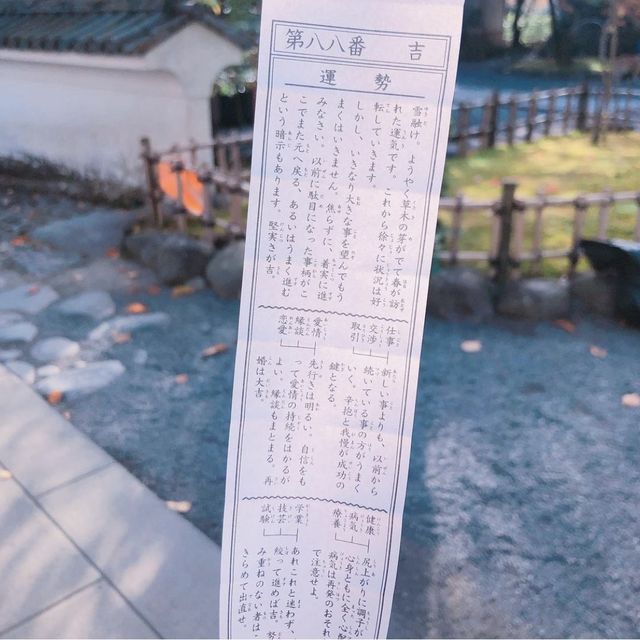 第八八番 吉
運勢
雪融け。ようやく草木の芽がでて春が訪
れた運気です。これから徐々に状況は好
転していきます。
しかし、いきなり大きな事を望んでもう
まくはいきません。焦らずに、着実に進
みなさい。以前に駄目になった事柄がこ
こでまた元へ戻る、あるいはうまく進む
という暗示もあります。堅実さが吉。
仕事
交渉
取引
新しい事よりも、以前から
続いている事の方がうまく
いく。辛抱と我慢が成功の
鍵となる。
愛情
縁談
恋愛
先行きは明るい。自信をも
って愛情の持続をはかるが
よい。縁談もまとまる。再
婚は大吉。
健康
病気
療養
尻上がりに調子が
心身ともに全く心配
病気は再発のおそれ
で注意せよ。
学業
技芸
試験
あれこれと迷わず、
絞って進めば吉。努
み重ねのない者は
きらめて出直せ。